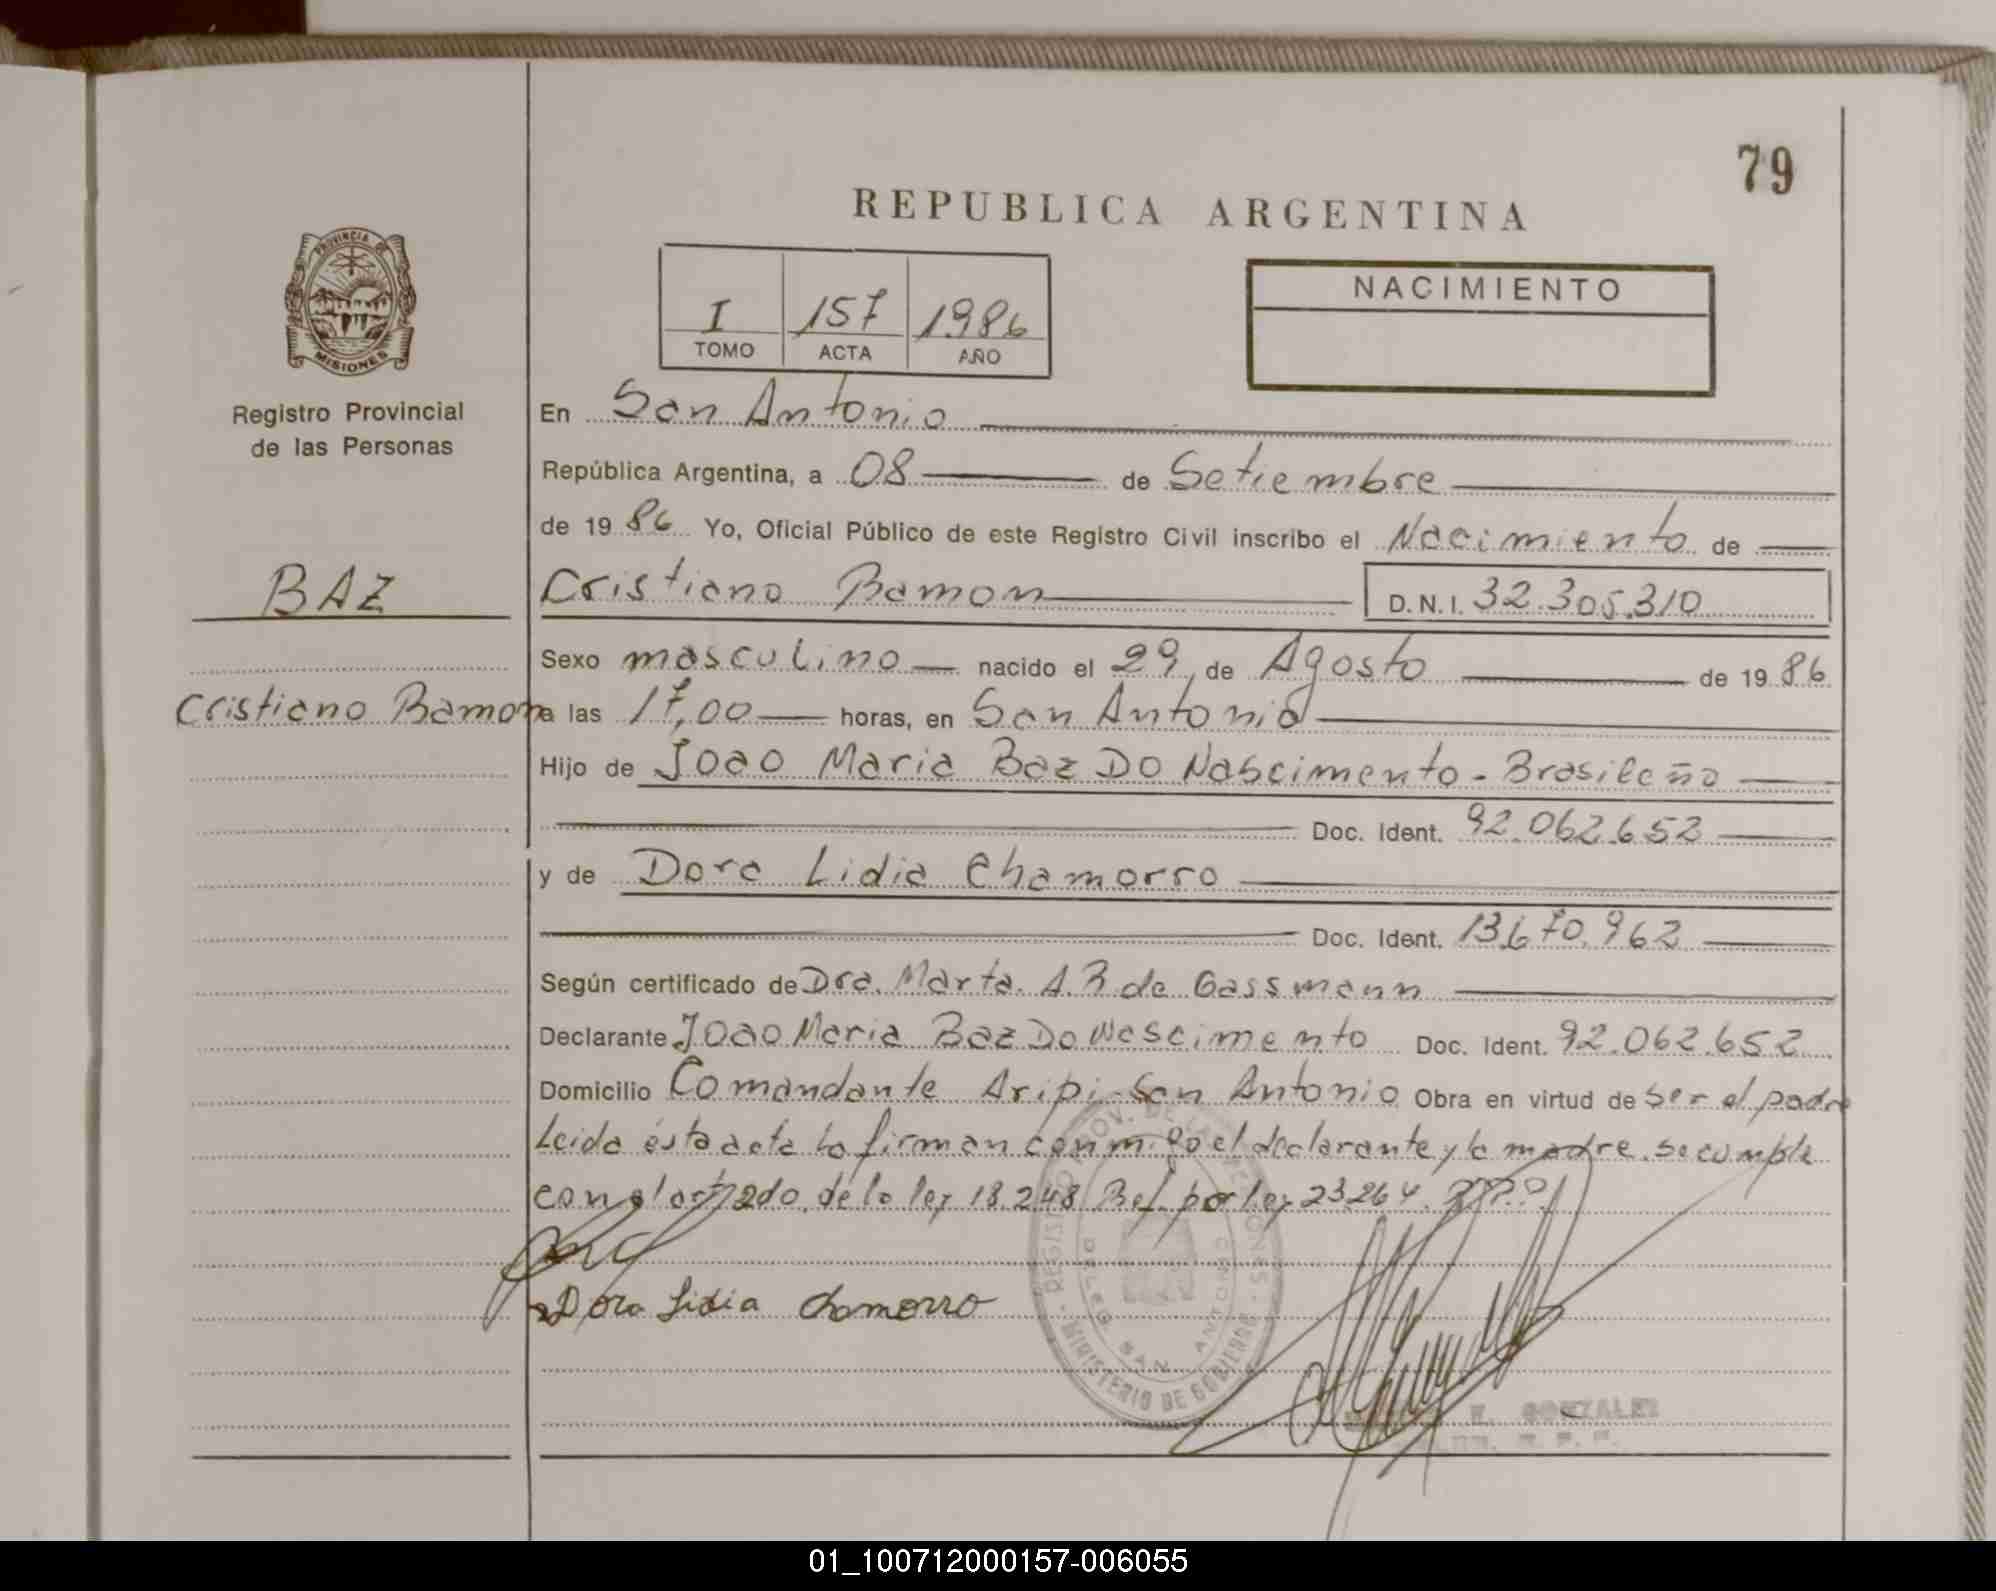 79
REPUBLICA ARGENTINA
PROVINCIA DE
MISIONES
Registro Provincial
de las Personas
NACIMIENTO
I 157 1986
TOMO ACTA AÑO
En San Antonio
República Argentina, a 08 de Setiembre
de 1986 Yo, Oficial Público de este Registro Civil inscribo el Nacimiento de
BAZ
Cristiano Ramon D.N.I. 32.305.310
Sexo masculino nacido el 29 de Agosto de 1986
Cristiano Ramon
a las 17,00 horas, en San Antonio
Hijo de Joao Maria Baz Do Nascimento - Brasileño
Doc. Ident. 92.062.652
y de Dora Lidia Chamorro
Doc. Ident. 13.670.962
Según certificado de Dra. Marta A.R de Gassmann
Declarante Joao Maria Baz Do Nascimento Doc. Ident. 92.062.652
Domicilio Comandante Aripi-San Antonio Obra en virtud de ser el padre
Leida ésta acta la firman conmigo el declarante y la madre. se cumple
con el art 2do. de la ley 18.248 Ref. por ley 23.264
Dora Lidia Chamorro
REGISTRO PROV. DE LAS PERSONAS
DELEG. SAN ANTONIO
MINISTERIO DE GOBIERNO
GONZALEZ
01_100712000157-006055